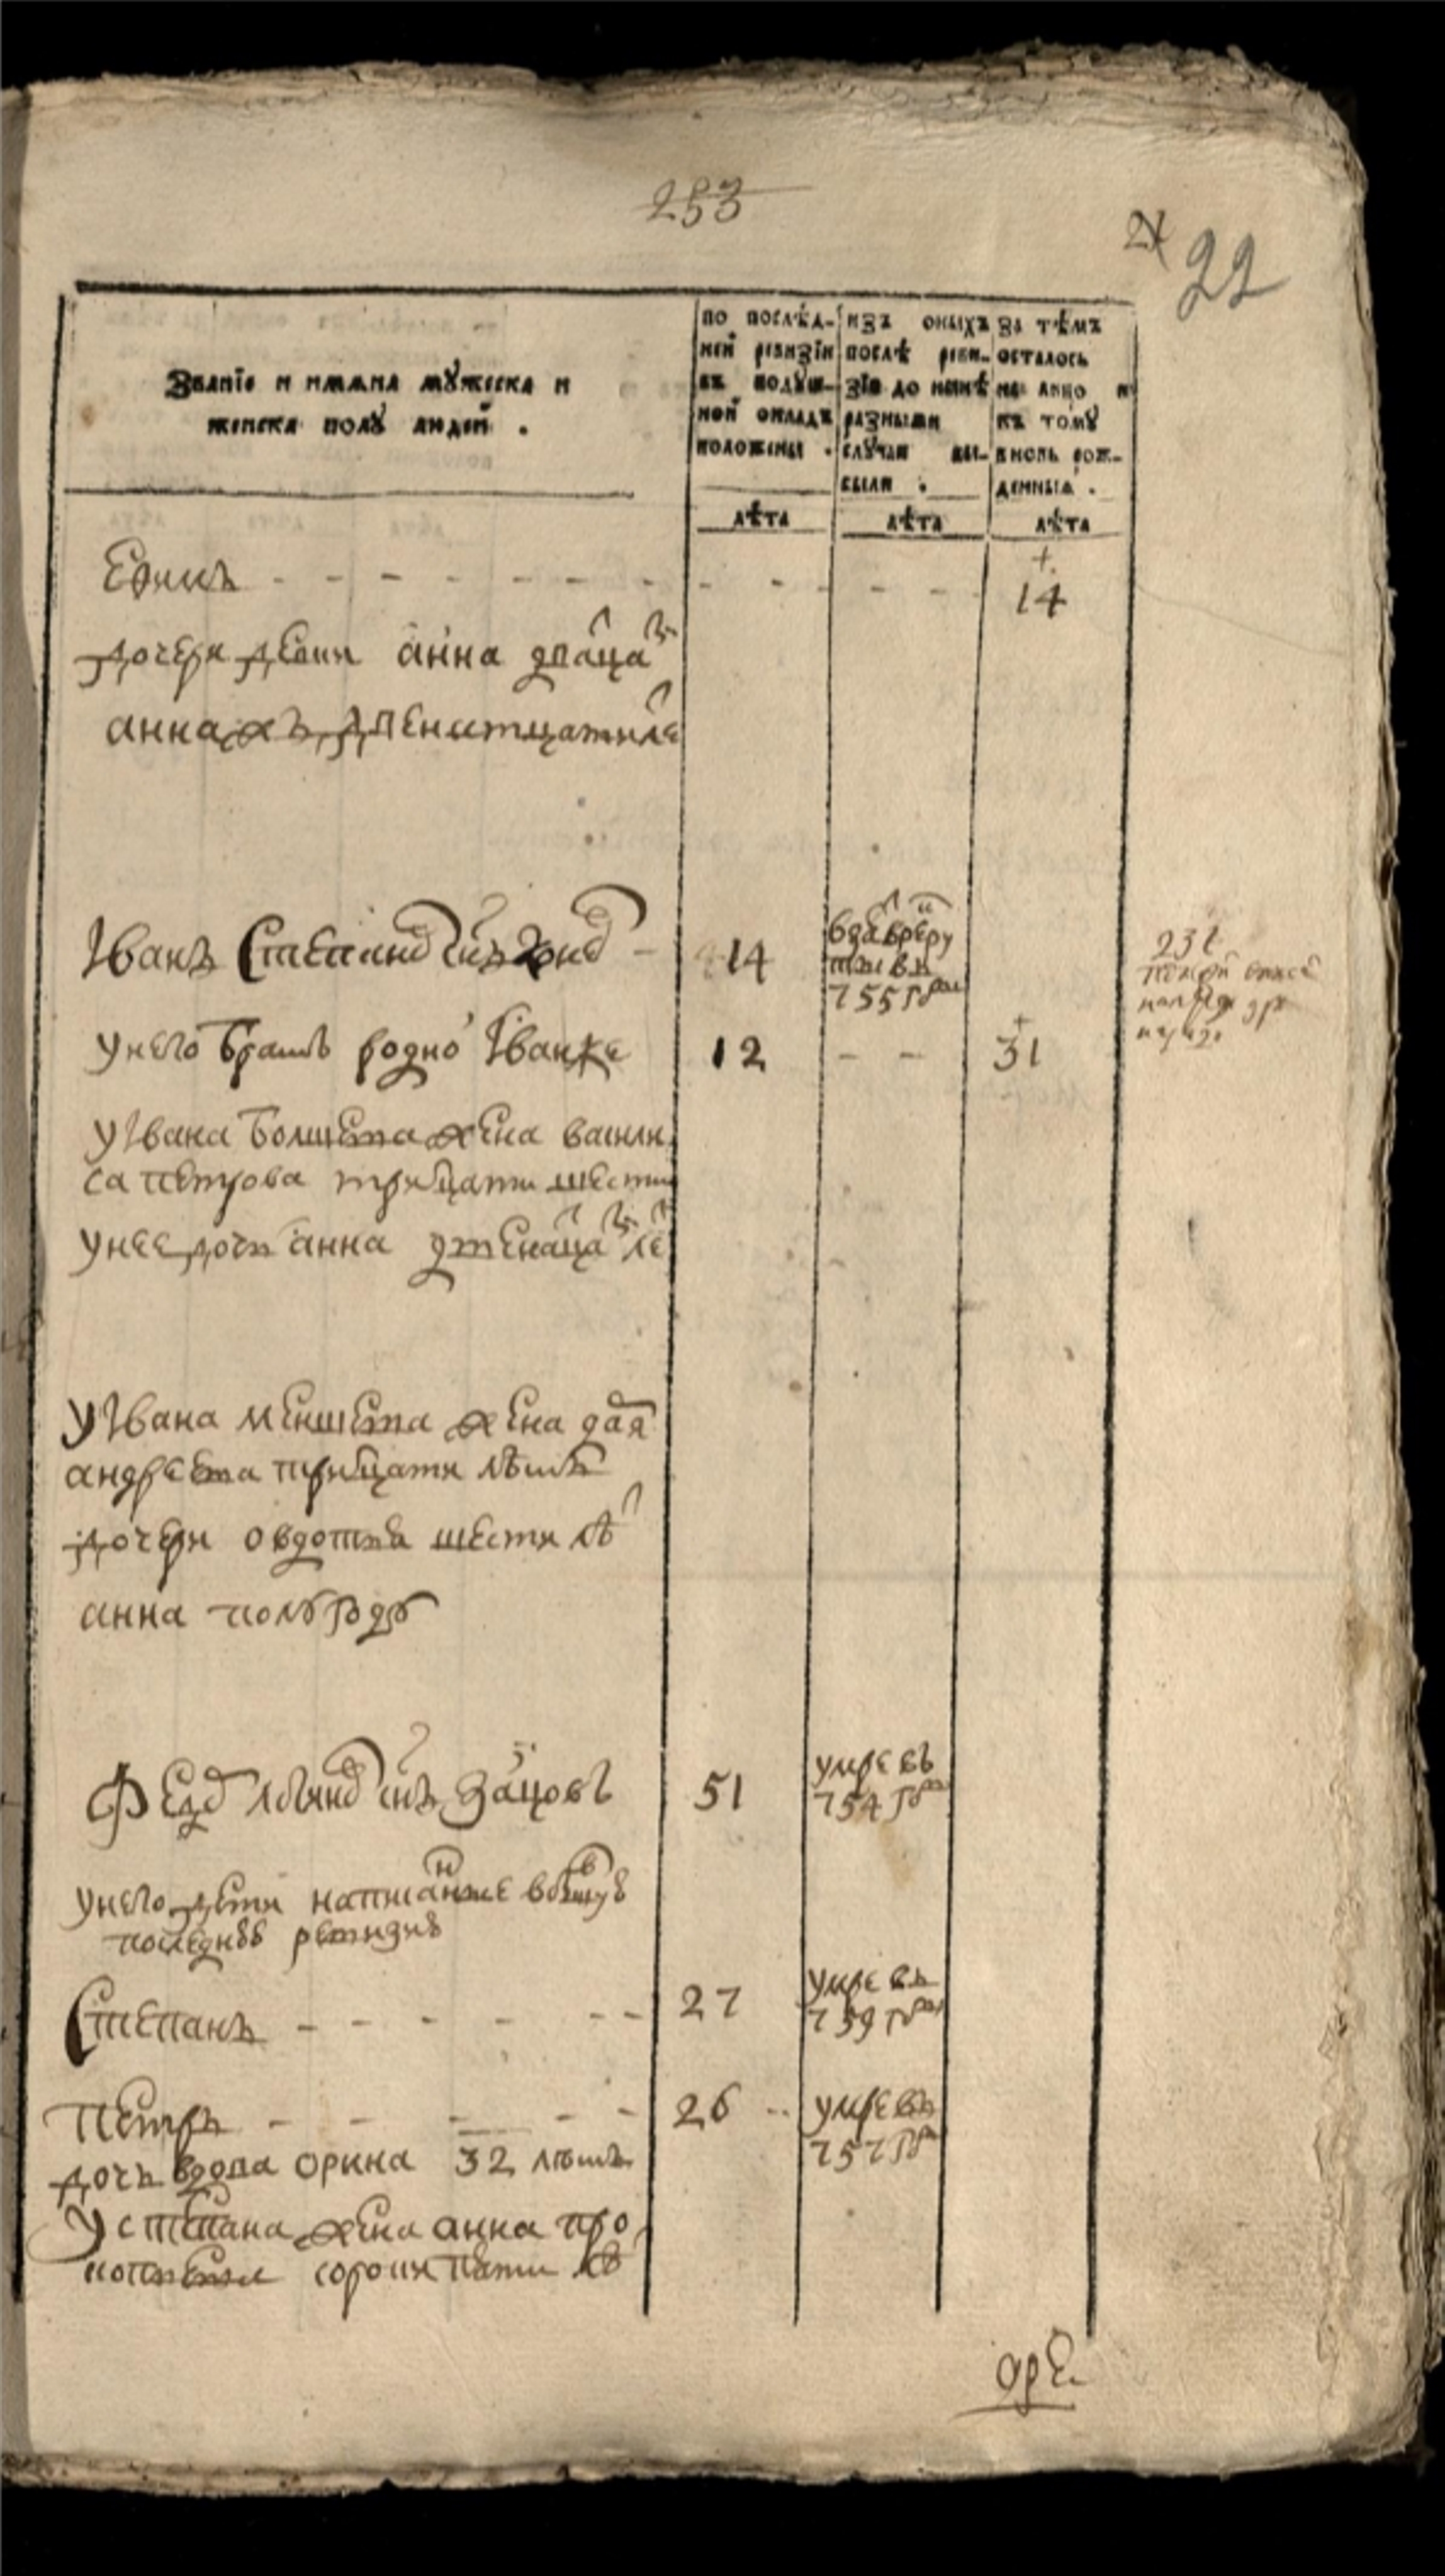 253
22
Званїе и имѧна мꙋжеска и
женска полꙋ людей .
по послѣд-
ней ревизїи
въ подꙋш-
ной окладъ
положены .
изъ оныхъ
послѣ реви-
зїи до нынѣ
разными
слꙋчаи вы-
были .
за тѣмъ
осталось
на лицо и
къ томꙋ
вновь рож-
денныѧ .
лѣта
лѣта
лѣта
14
дочери девки анна двацат
анна ж двенатцати ле
Іванъ Степанов снъ
14
взят в рекру
ты въ
755 году
231
у него братъ родно Іван же
12
31
у Івана болшева жена васили
са петрова трицати шести
у нее дочь анна двенацат ле
у Івана меншева жена дар
андреева трицати лѣтъ
дочери овдотья шести лѣ
анна полугоду
Федор снъ Зайцовъ
51
умре въ
754 году
у него дети написанные в бывшую
последнюю ревизию
Степанъ
27
умре въ
759 году
Петръ
26
умре въ
757 году
дочь вдова орина 32 лѣтъ
у степана жена анна про
копьева сорока пяти лѣ